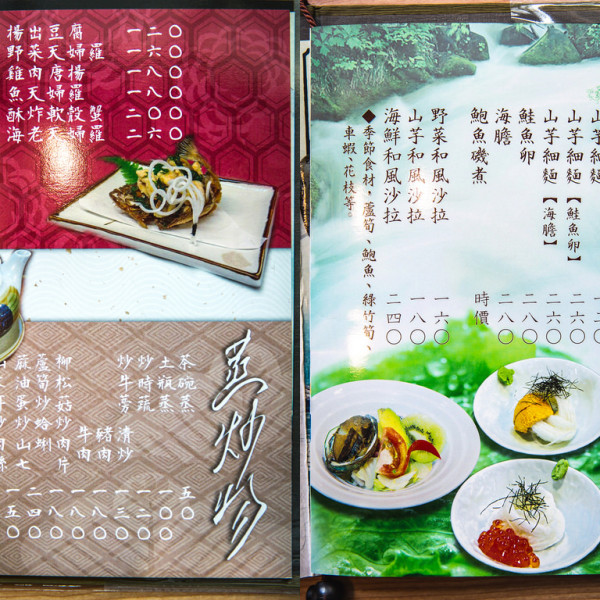 楊出豆腐 一二〇
野菜天婦羅 一六〇
雞肉唐楊 一八〇
魚天婦羅 一八〇
酥炸軟殼蟹 二〇〇
海老天婦羅 二六〇
蒸炒物
茶碗蒸 五〇
土瓶蒸
炒時蔬 一二〇
炒牛蒡 一三〇
柳松菇 肉片 牛肉 豬肉 清炒 一八〇
蘆筍炒蛤蜊 一八〇
山芋細麵【鮭魚卵】 二六〇
山芋細麵【海膽】 二八〇
鮭魚卵 二〇〇
海膽 二八〇
鮑魚磯煮 時價
野菜和風沙拉 一六〇
山芋和風沙拉 一八〇
海鮮和風沙拉 二四〇
◆季節食材，蘆筍、鮑魚、綠竹筍、
車蝦、花枝等。